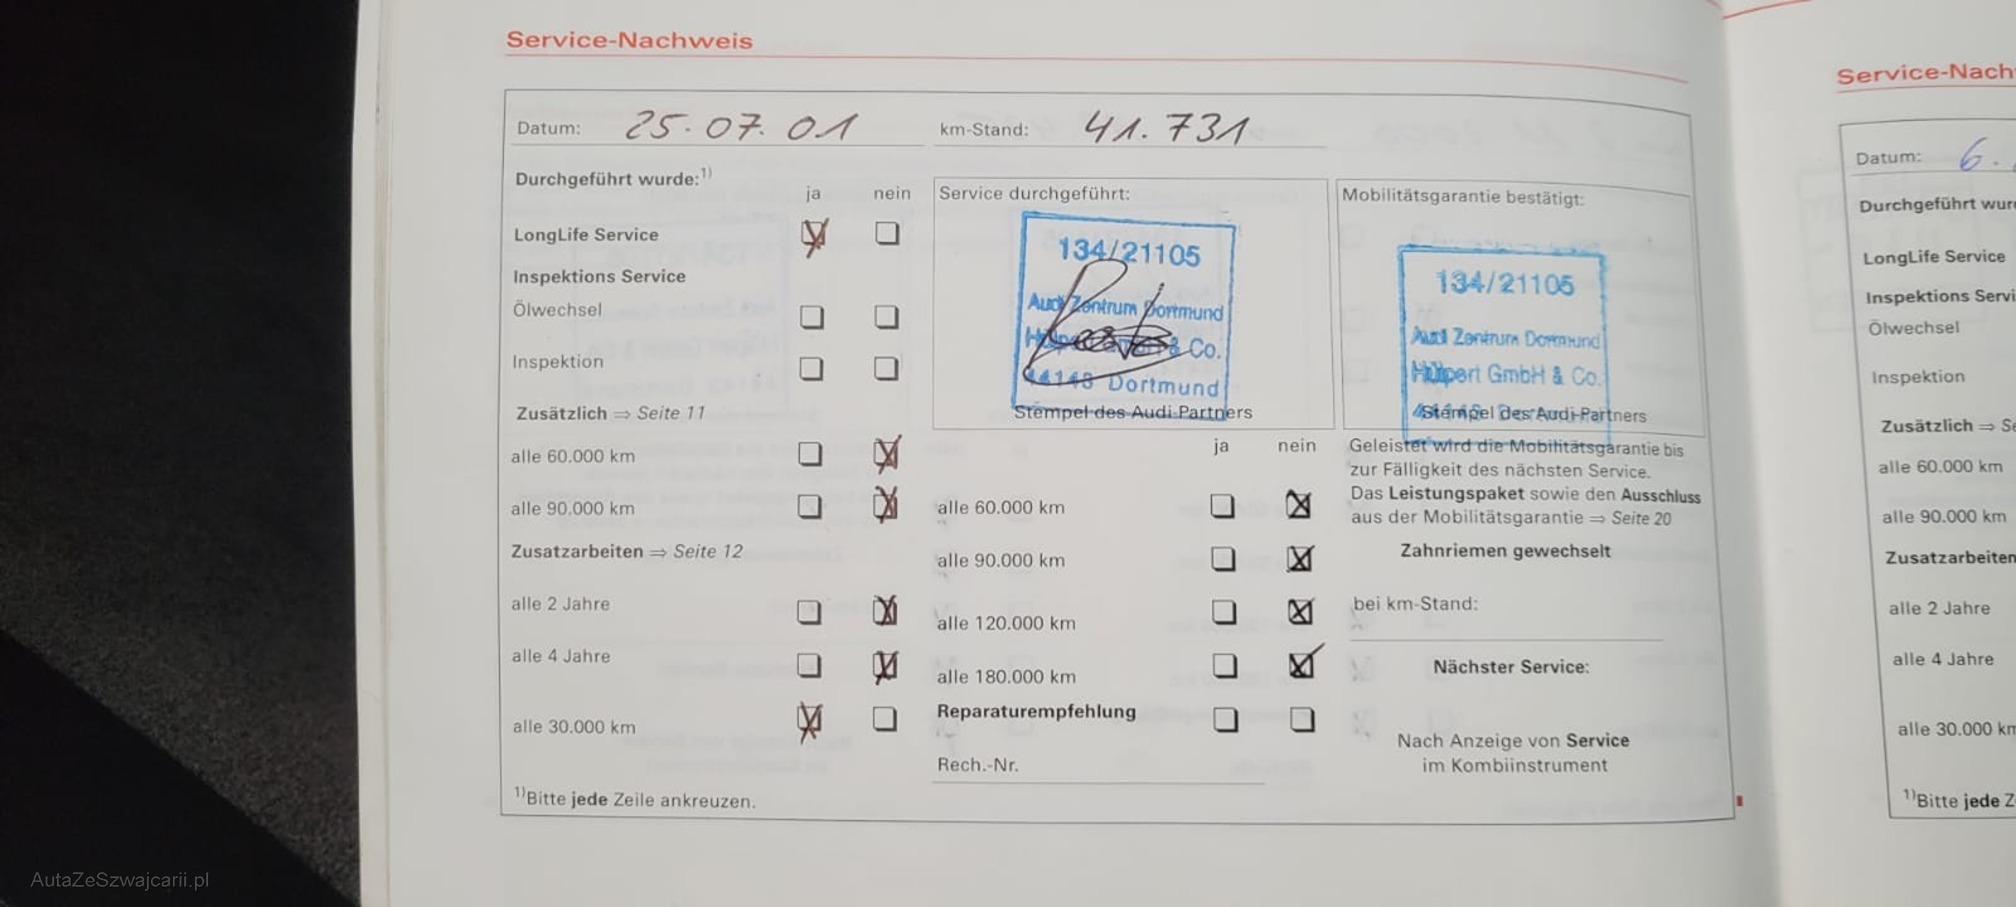 Service-Nachweis
Datum: 25.07.01 km-Stand: 41.731
Durchgeführt wurde:1)
ja nein
LongLife Service
Inspektions Service
Ölwechsel
Inspektion
Zusätzlich ⇒ Seite 11
alle 60.000 km
alle 90.000 km
Zusatzarbeiten ⇒ Seite 12
alle 2 Jahre
alle 4 Jahre
alle 30.000 km
1)Bitte jede Zeile ankreuzen.
Service durchgeführt:
134/21105
Audi Zentrum Dortmund
& Co.
44143 Dortmund
Stempel des Audi-Partners
ja nein
alle 60.000 km
alle 90.000 km
alle 120.000 km
alle 180.000 km
Reparaturempfehlung
Rech.-Nr.
Mobilitätsgarantie bestätigt:
134/21105
Audi Zentrum Dortmund
Hülpert GmbH & Co.
Stempel des Audi-Partners
Geleistet wird die Mobilitätsgarantie bis
zur Fälligkeit des nächsten Service.
Das Leistungspaket sowie den Ausschluss
aus der Mobilitätsgarantie ⇒ Seite 20
Zahnriemen gewechselt
bei km-Stand:
Nächster Service:
Nach Anzeige von Service
im Kombiinstrument
Service-Nach
Datum: 6.
Durchgeführt wur
LongLife Service
Inspektions Servi
Ölwechsel
Inspektion
Zusätzlich ⇒ Se
alle 60.000 km
alle 90.000 km
Zusatzarbeiten
alle 2 Jahre
alle 4 Jahre
alle 30.000 km
1)Bitte jede Z
AutaZeSzwajcarii.pl